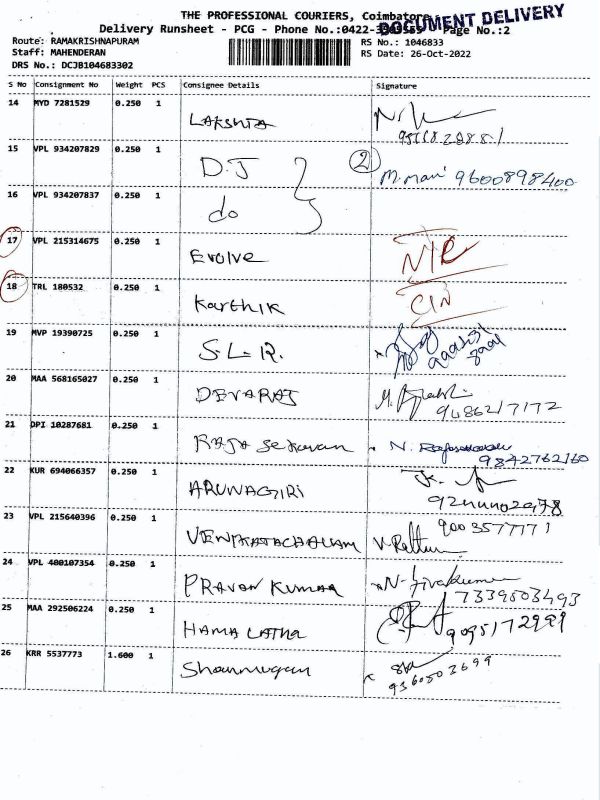 THE PROFESSIONAL COURIERS, Coimbatore
DOCUMENT DELIVERY
Delivery Runsheet - PCG - Phone No.:0422- Page No.:2
Route: RAMAKRISHNAPURAM RS No.: 1046833
Staff: MAHENDERAN RS Date: 26-Oct-2022
DRS No.: DCJB104683302
S No Consignment No Weight PCS Consignee Details Signature
14 MYD 7281529 0.250 1
LAKSHTA
15 VPL 934207829 0.250 1
D.J 2 M.mani 9600898400
16 VPL 934207837 0.250 1
do
17 VPL 215314675 0.250 1
Evolve N/R
18 TRL 180532 0.250 1
Karthik C/N
19 MVP 19390725 0.250 1
S.L.R.
20 MAA 568165027 0.250 1
DEVARAJ
9486217172
21 DPI 10287681 0.250 1
RAJA Sekaran N.
9842762160
22 KUR 694066357 0.250 1
ARUNAGIRI
23 VPL 215640396 0.250 1
9003577171
VENKATACHALAM
24 VPL 400107354 0.250 1
PRAVAN KUMAR N. Sivakumar
7339503493
25 MAA 292506224 0.250 1
HAMA LATHA 9095172999
26 KRR 5537773 1.600 1
Shanmugam
9360503699